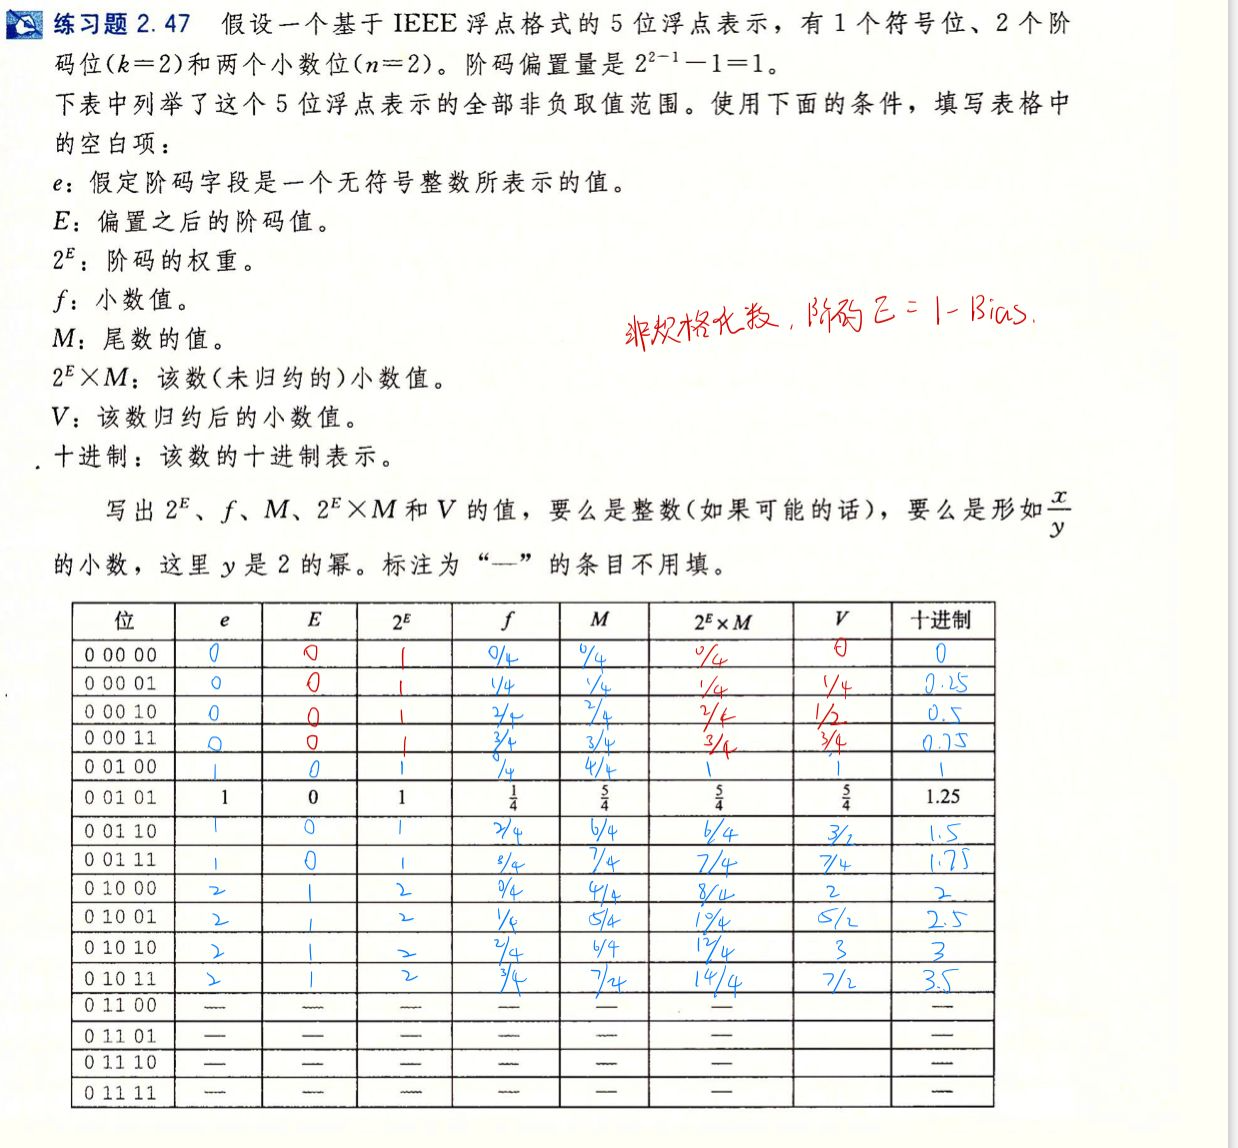 练习题 2.47 假设一个基于 IEEE 浮点格式的 5 位浮点表示，有 1 个符号位、2 个阶
码位(k=2)和两个小数位(n=2)。阶码偏置量是 2²⁻¹-1=1。
下表中列举了这个 5 位浮点表示的全部非负取值范围。使用下面的条件，填写表格中
的空白项：
e：假定阶码字段是一个无符号整数所表示的值。
E：偏置之后的阶码值。
2ᴱ：阶码的权重。
f：小数值。
非规格化数，阶码 E = 1 - Bias.
M：尾数的值。
2ᴱ×M：该数(未归约的)小数值。
V：该数归约后的小数值。
十进制：该数的十进制表示。
写出 2ᴱ、f、M、2ᴱ×M 和 V 的值，要么是整数(如果可能的话)，要么是形如 x/y
的小数，这里 y 是 2 的幂。标注为“—”的条目不用填。
位 e E 2ᴱ f M 2ᴱ×M V 十进制
0 00 00 0 0 1 0/4 0/4 0/4 0 0
0 00 01 0 0 1 1/4 1/4 1/4 1/4 0.25
0 00 10 0 0 1 2/4 2/4 2/4 1/2 0.5
0 00 11 0 0 1 3/4 3/4 3/4 3/4 0.75
0 01 00 1 0 1 0/4 4/4 1 1 1
0 01 01 1 0 1 1/4 5/4 5/4 5/4 1.25
0 01 10 1 0 1 2/4 6/4 6/4 3/2 1.5
0 01 11 1 0 1 3/4 7/4 7/4 7/4 1.75
0 10 00 2 1 2 0/4 4/4 8/4 2 2
0 10 01 2 1 2 1/4 5/4 10/4 5/2 2.5
0 10 10 2 1 2 2/4 6/4 12/4 3 3
0 10 11 2 1 2 3/4 7/4 14/4 7/2 3.5
0 11 00 — — — — — — —
0 11 01 — — — — — — —
0 11 10 — — — — — — —
0 11 11 — — — — — — —